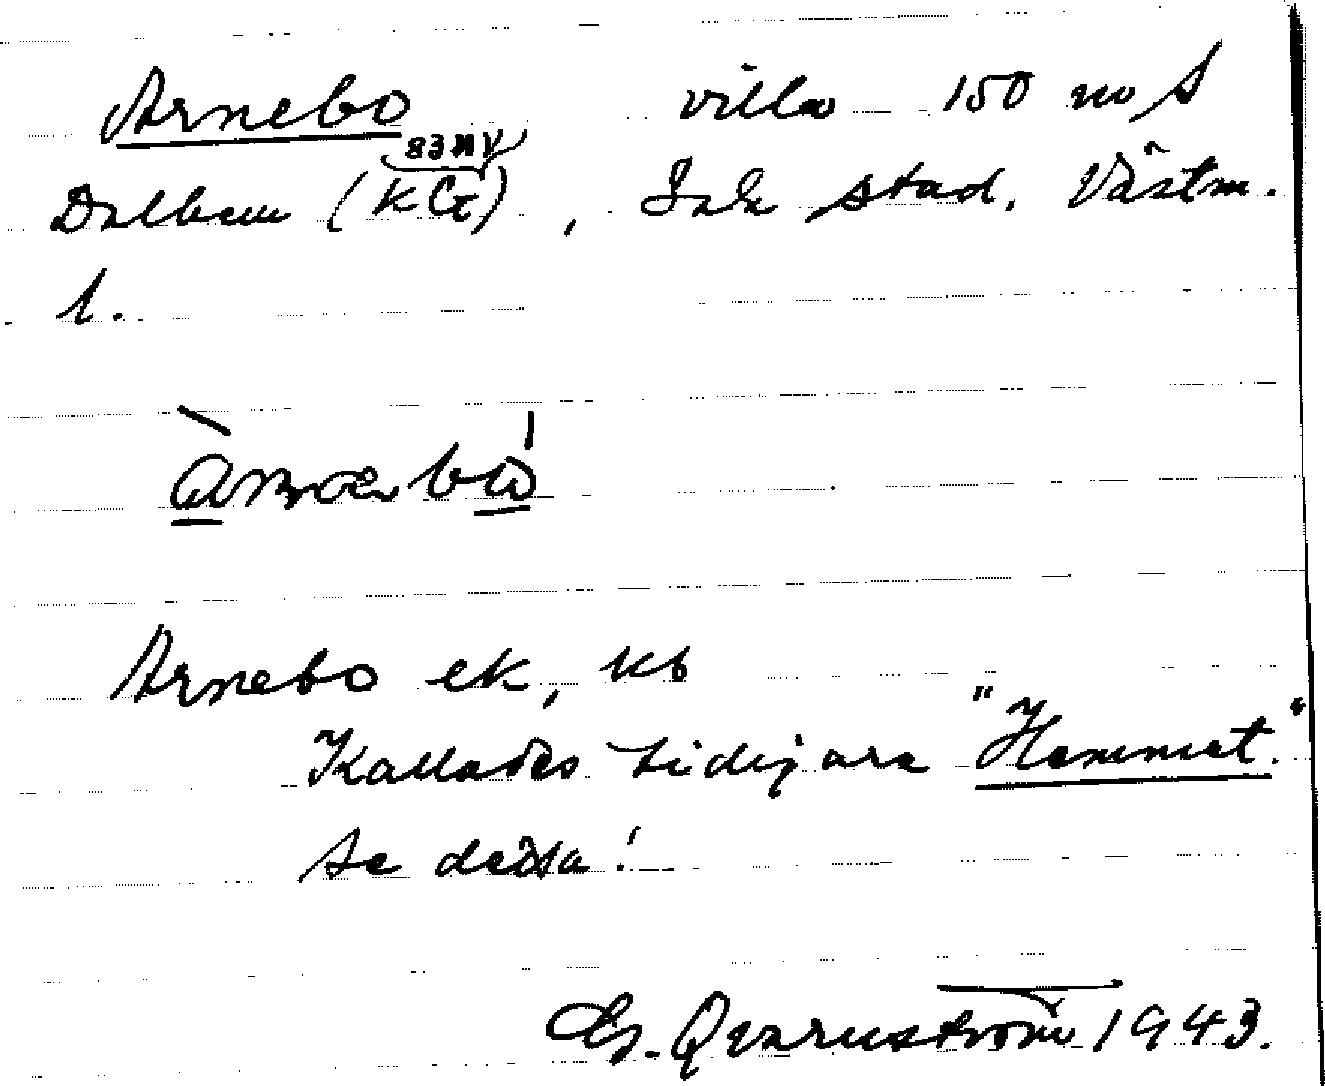 Arnebo villa 150 m S
Dalbem (KG), Sala stad, Västm.
l.
àrnœbω
Arnebo ek, kb
Kallades tidigare "Hemmet."
Se detta!
G. Qvarnström 1943.